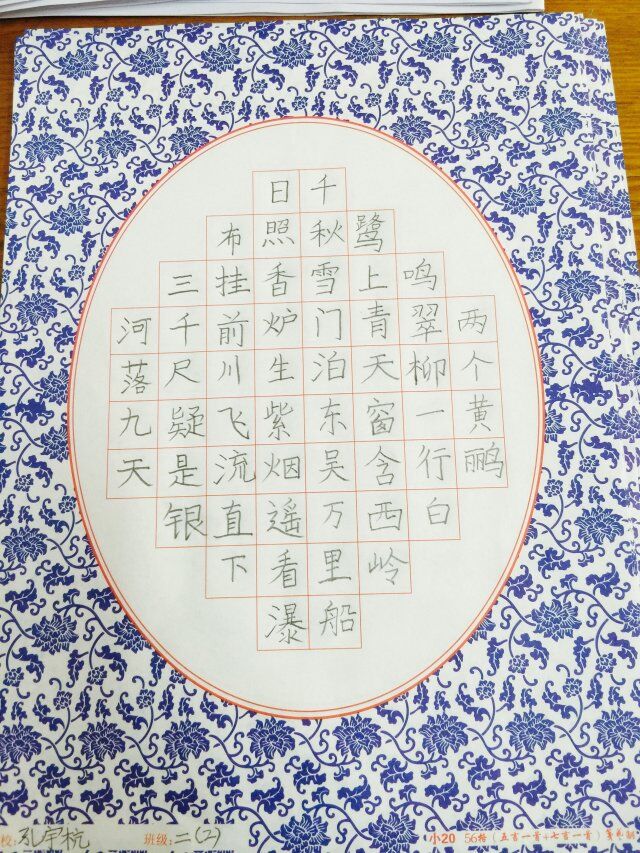 两个黄鹂
鸣翠柳一行白
鹭上青天窗含西岭
千秋雪门泊东吴万里船
日照香炉生紫烟遥看瀑
布挂前川飞流直下
三千尺疑是银
河落九天
校: 孔宇杭 班级: 二(2) 小20 56格(五言一首+七言一首)